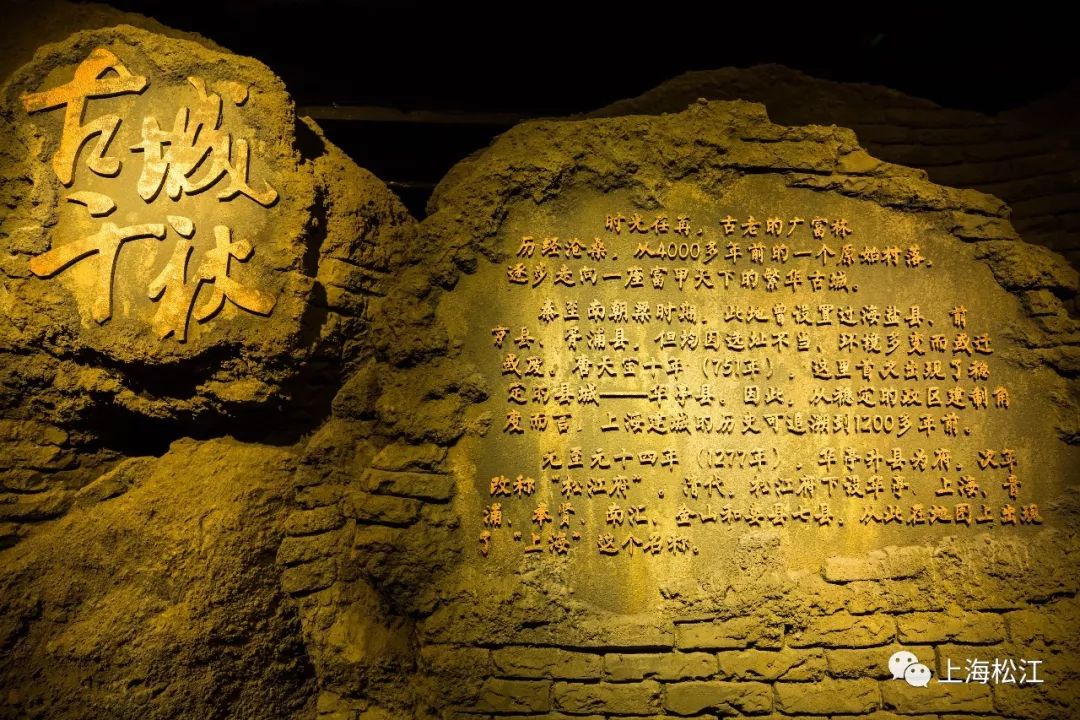 古城
千秋
时光荏苒，古老的广富林
历经沧桑，从4000多年前的一个原始村落，
逐步走向一座富甲天下的繁华古城。
秦至南朝梁时期，此地曾设置过海盐县、前
京县、胥浦县，但均因选址不当、环境多变而或迁
或废。唐天宝十年（751年），这里首次出现了稳
定的县城——华亭县。因此，从稳定的政区建制角
度而言，上海建城的历史可追溯到1200多年前。
元至元十四年（1277年），华亭升县为府，次年
改称“松江府”。清代，松江府下设华亭、上海、青
浦、奉贤、南汇、金山和娄县七县，从此在地图上出现
了“上海”这个名称。
上海松江